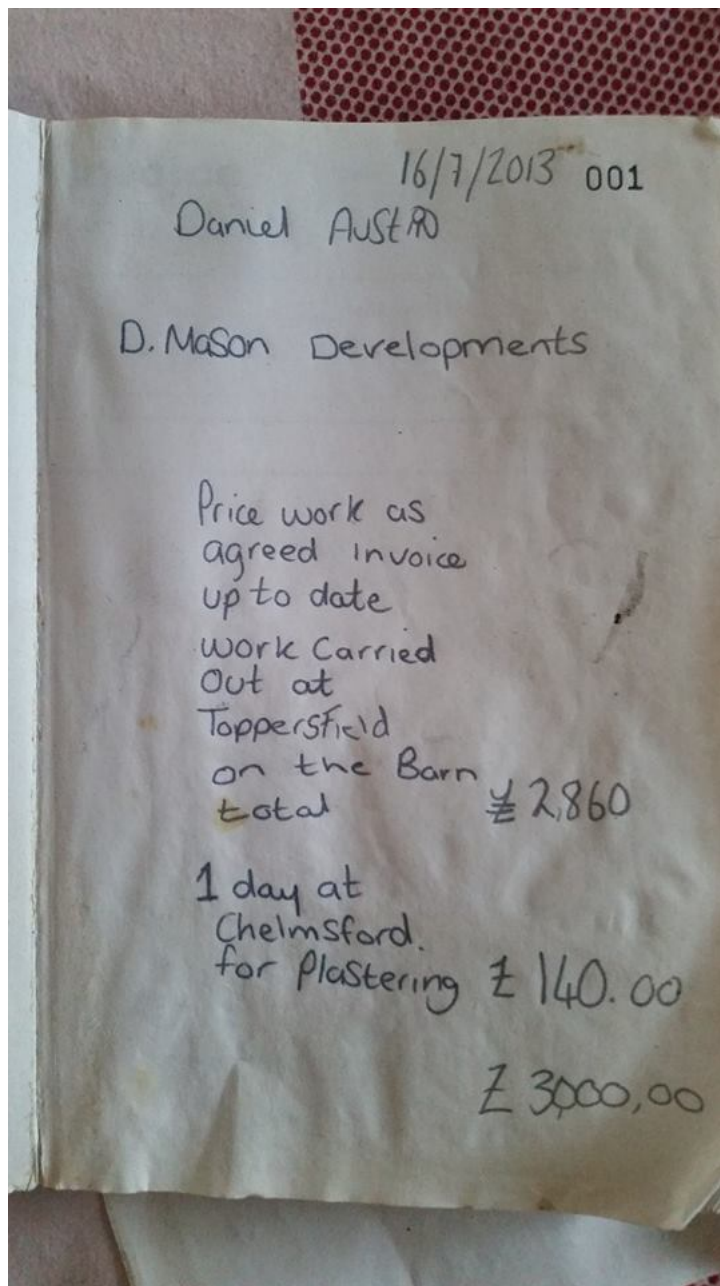 16/7/2013 001
Daniel
D. Mason Developments
Price work as
agreed invoice
up to date
work Carried
Out at
Toppersfield
on the Barn
total £2,860
1 day at
Chelmsford.
for Plastering £140.00
£3,000,00